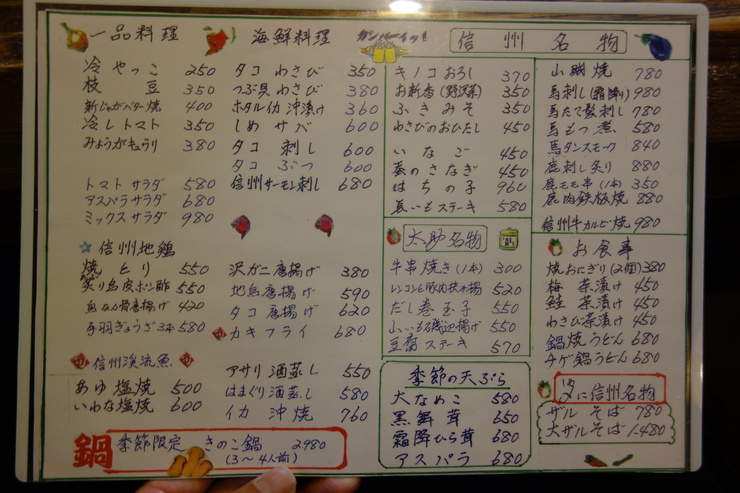 一品料理
冷やっこ 250
枝豆 350
新じゃがバター焼 400
冷しトマト 350
みょうがきゅうり 380
トマトサラダ 580
アスパラサラダ 680
ミックスサラダ 980
信州地鶏
焼とり 550
炙り鳥皮ポン酢 550
鳥なん骨唐揚げ 420
手羽ぎょうざ3本 580
信州渓流魚
あゆ塩焼 500
いわな塩焼 600
海鮮料理
タコわさび 350
つぶ貝わさび 380
ホタルイカ沖漬け 360
しめサバ 600
タコ刺し 600
タコぶつ 600
信州サーモン刺し 680
沢ガニ唐揚げ 380
地鳥唐揚げ 590
タコ唐揚げ 620
カキフライ 680
アサリ酒蒸し 550
はまぐり酒蒸し 580
イカ沖焼 760
鍋 季節限定 きのこ鍋 2980
(3〜4人前)
カンパーイッ!!
信州名物
キノコおろし 370
お新香(野沢菜) 350
ふきみそ 350
わさびのおひたし 450
いなご 450
蚕のさなぎ 450
はちの子 960
長いもステーキ 580
太助名物
牛串焼き(1本) 300
レンコンと豚肉挟み揚 520
だし巻玉子 550
山いも磯辺揚げ 550
豆腐ステーキ 570
季節の天ぷら
大なめこ 580
黒舞茸 650
霜降ひら茸 680
アスパラ 680
山賊焼 780
馬刺し(霜降り) 980
馬たて髪刺し 780
馬もつ煮 580
馬タンスモーク 840
鹿刺し炙り 880
鹿モモ串(1本) 350
鹿肉鉄板焼 880
信州牛カルビ焼 980
お食事
焼おにぎり(2個) 380
梅茶漬け 450
鮭茶漬け 450
わさび茶漬け 450
鍋焼うどん 680
チゲ鍋うどん 680
〆に信州名物
ザルそば 780
大ザルそば 1.480